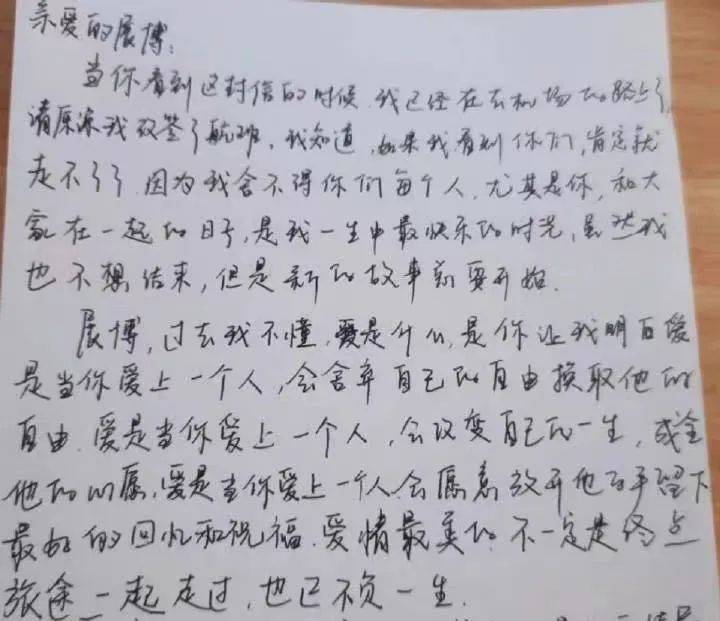 亲爱的展博：
当你看到这封信的时候，我已经在去机场的路上了，
请原谅我改签了航班，我知道，如果我看到你们，肯定就
走不了了 因为我舍不得你们每个人，尤其是你，和大
家在一起的日子，是我一生中最快乐的时光，虽然我
也不想结束，但是新的故事就要开始．
展博，过去我不懂，爱是什么，是你让我明白爱
是当你爱上一个人，会舍弃自己的自由换取他的
自由．爱是当你爱上一个人，会改变自己的一生，成全
他的心愿，爱是当你爱上一个人会愿意放开他的手留下
最好的回忆和祝福．爱情最美的，不一定是终点
旅途一起走过，也已不负一生．